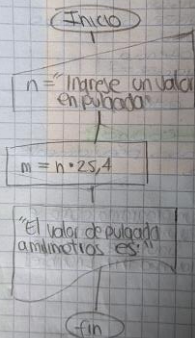 Inicio
n = "Ingrese un valor
en pulgada"
m = n • 25,4
"El valor de pulgada
a milimetros es:"
fin